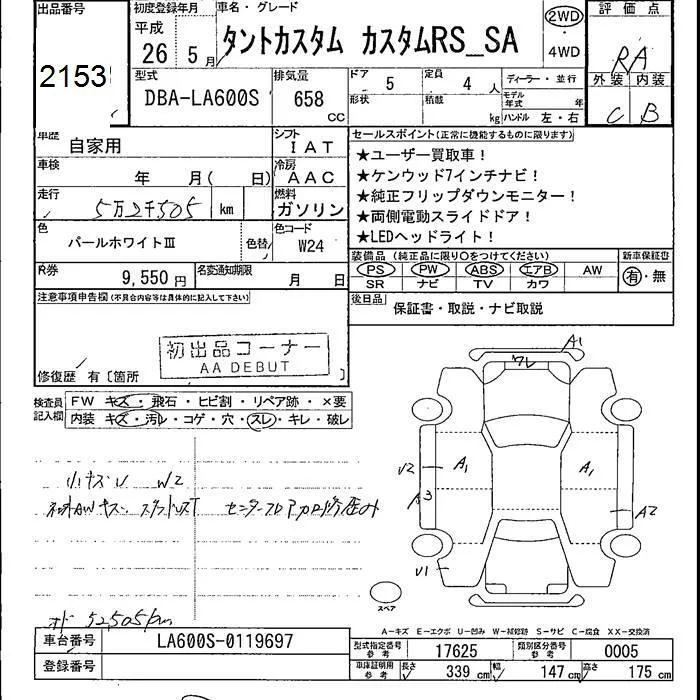 出品番号 初度登録年月 車名・グレード 評価点
2153 平成 26 5月 タントカスタム カスタムRS_SA 2WD・4WD RA
型式 排気量 ドア 5 定員 4人 ディーラー・並行 外装 内装
DBA-LA600S 658 CC 形状 積載 kg モデル年式 年 ハンドル 左・右 C B
車歴 自家用 シフト IAT セールスポイント(正常に機能するものに限ります)
車検 年 月( 日) 冷房 AAC ★ユーザー買取車！
★ケンウッド7インチナビ！
走行 5万2千505 km 燃料 ガソリン ★純正フリップダウンモニター！
★両側電動スライドドア！
色 パールホワイトⅢ 色替 色コード W24 ★LEDヘッドライト！
R券 9,550円 名変通知期限 月 日 装備品 (純正品に限り○をつけてください) 新車保証書
PS PW ABS エアB AW 有・無
SR ナビ TV カワ
注意事項申告欄(不具合内容等は具体的に記入して下さい) 後日品 保証書・取説・ナビ取説
初出品コーナー
AA DEBUT
修復歴 有〔箇所 〕
検査員記入欄 FW キズ・飛石・ヒビ割・リペア跡・×要
内装 キズ・汚レ・コゲ・穴・スレ・キレ・破レ
A1
ワレ
U2 A1 A1
A3 A2
U1
小キズU W2
スペア
オド 52505km
A-キズ E-エクボ U-凹み W-補修跡 S-サビ C-腐食 XX-交換済
車台番号 LA600S-0119697 型式指定番号 参考 17625 類別区分番号 参考 0005
登録番号 車庫証明用 参考 長さ 339 cm 幅 147 cm 高さ 175 cm